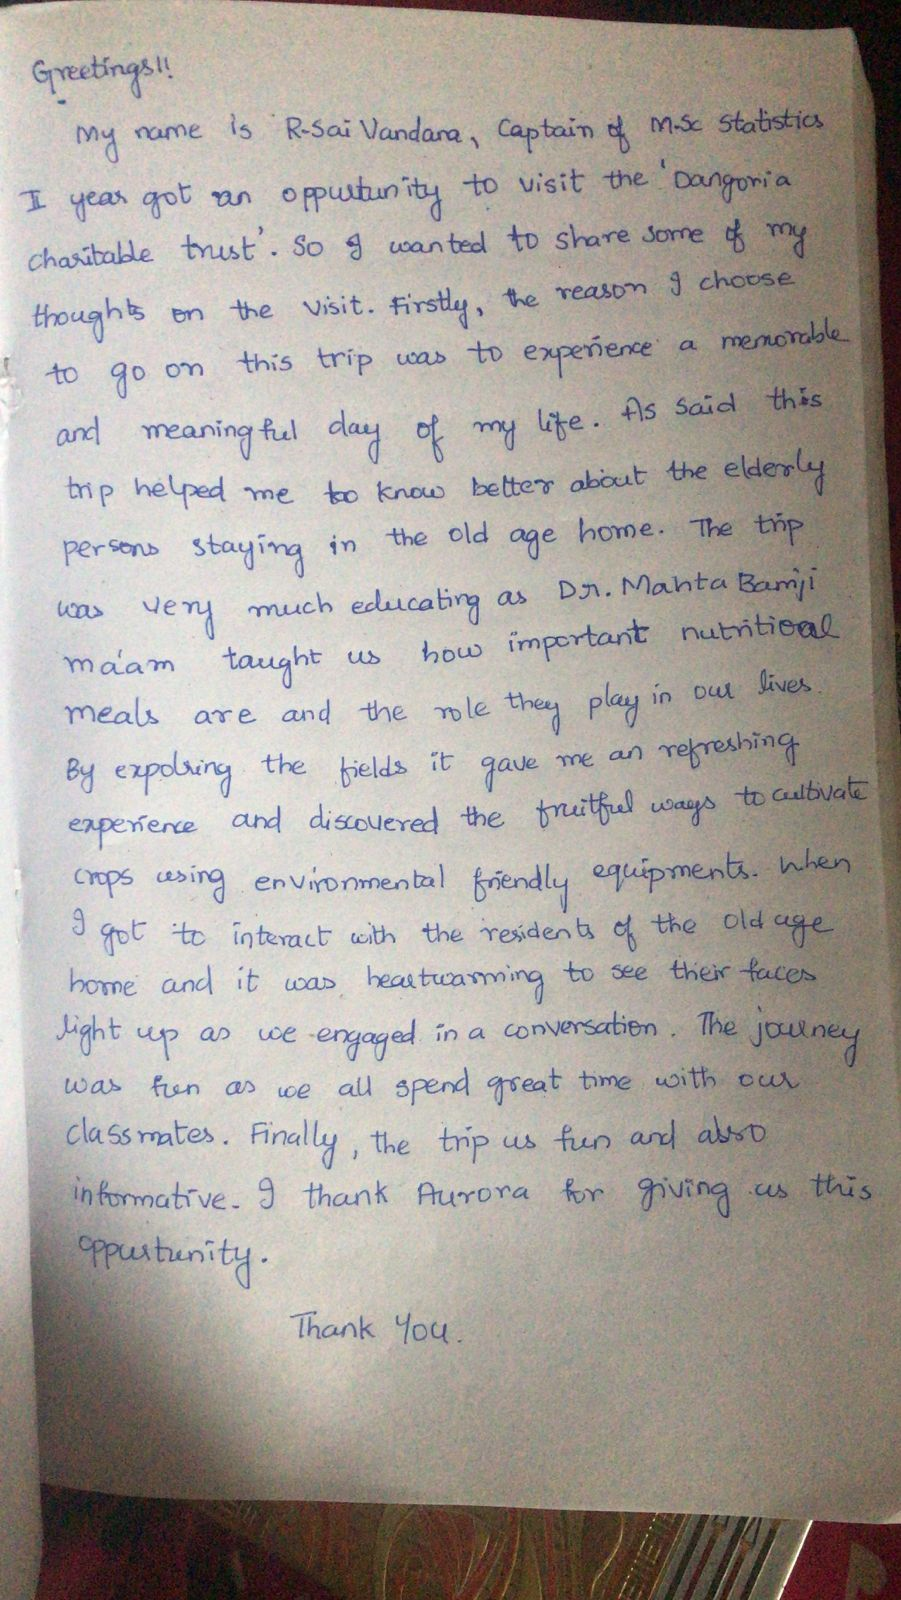 Greetings!!
My name is R-Sai Vandana, Captain of M.Sc Statistics
II year got an oppurtunity to visit the 'Dangoria
charitable trust'. So I wanted to share some of my
thoughts on the visit. Firstly, the reason I choose
to go on this trip was to experience a memorable
and meaningful day of my life. As said this
trip helped me to know better about the elderly
persons staying in the old age home. The trip
was very much educating as Dr. Mahta Bamji
ma'am taught us how important nutritional
meals are and the role they play in our lives.
By expolring the fields it gave me an refreshing
experience and discovered the fruitful ways to cultivate
crops using environmental friendly equipments. When
I got to interact with the residents of the old age
home and it was heartwarming to see their faces
light up as we engaged in a conversation. The journey
was fun as we all spend great time with our
classmates. Finally, the trip us fun and also
informative. I thank Aurora for giving us this
oppurtunity.
Thank You.